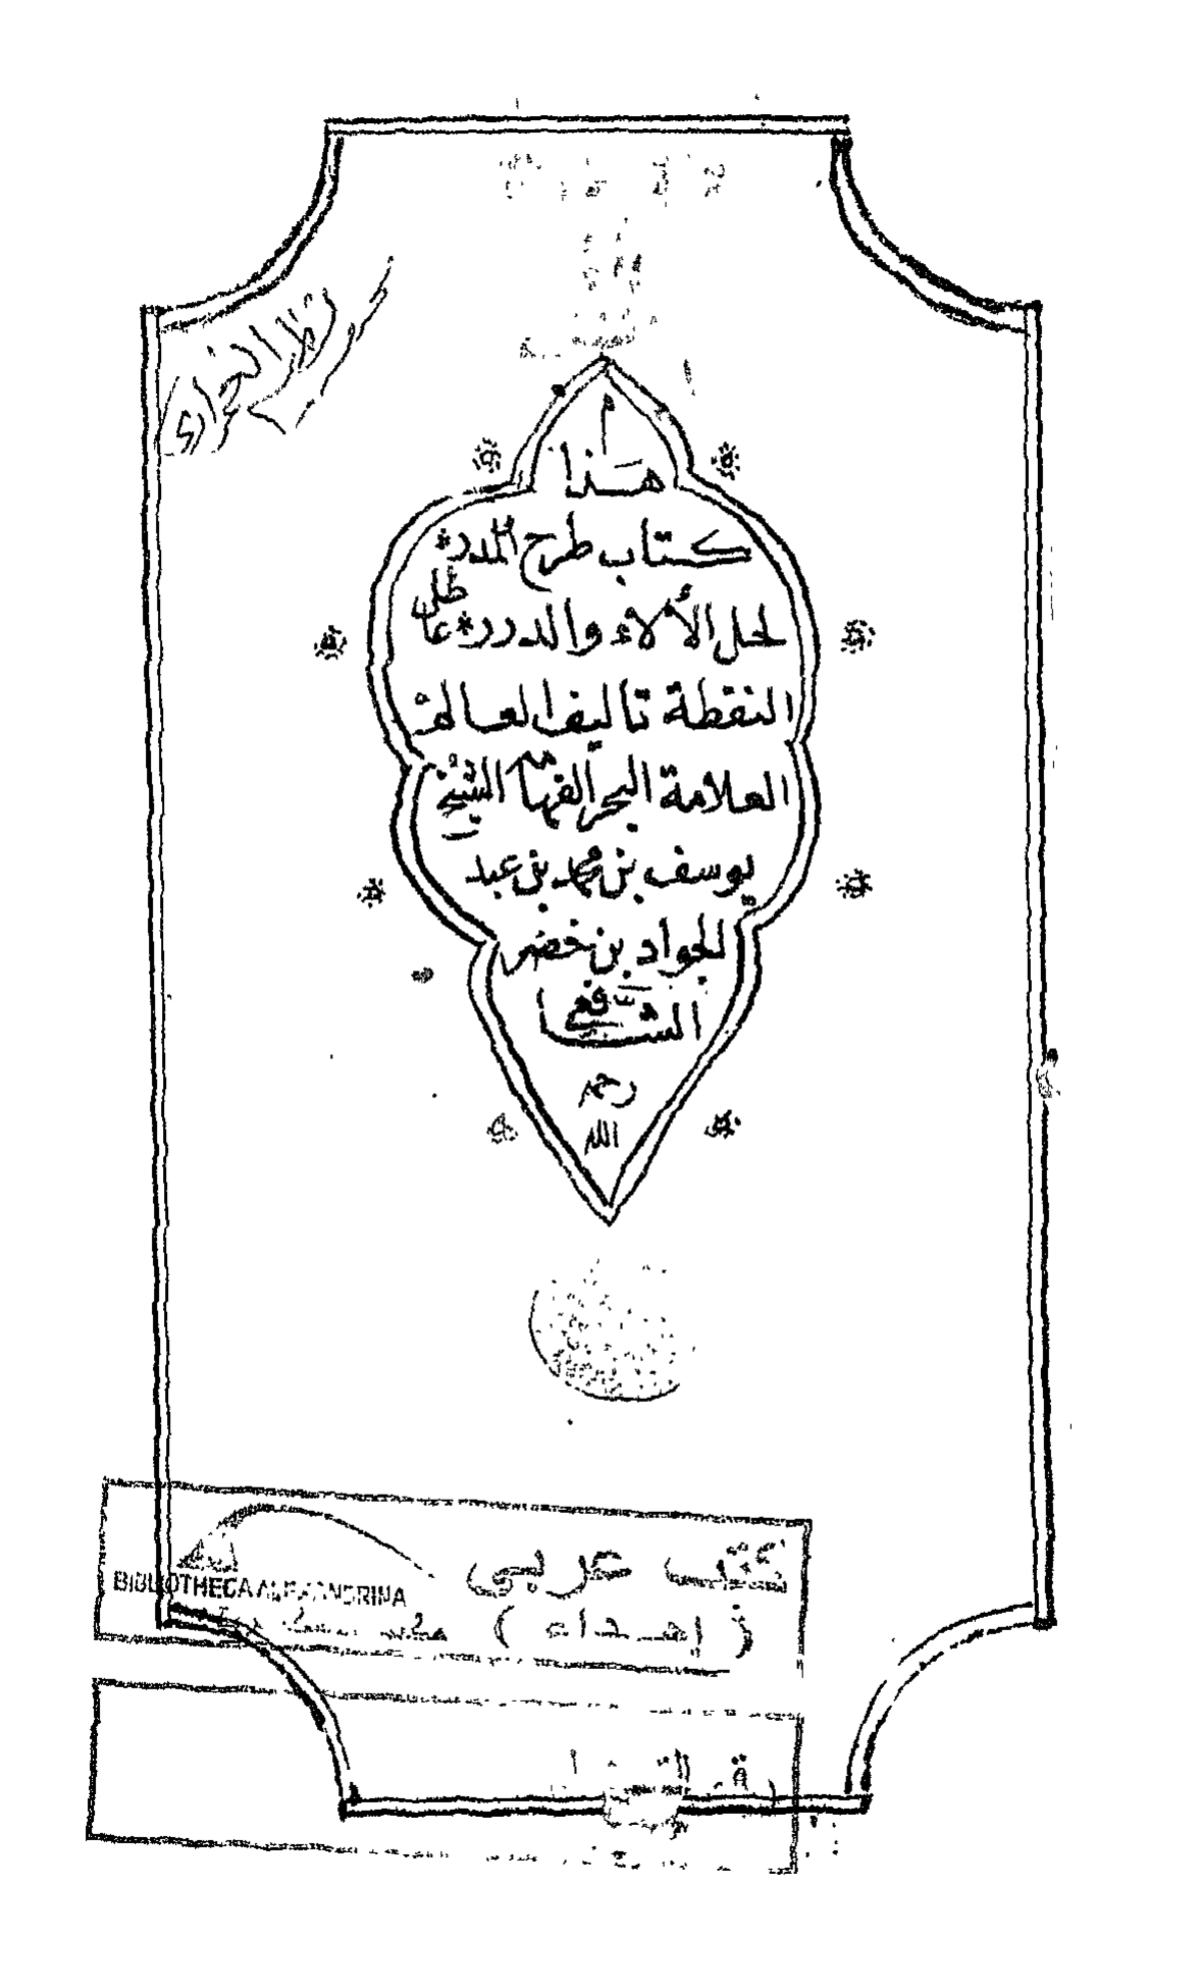 هذا
كتاب طرح المدر*
لحل الألاء والدرر* عاطل
النقطة تاليف العالم
العلامة البحر الفهامة الشيخ
يوسف بن محمد بن عبد
الجواد بن خضر
الشافعي
رحمه
الله
كتب عربي
BIBLIOTHECA ALEXANDRINA
( إهداء )